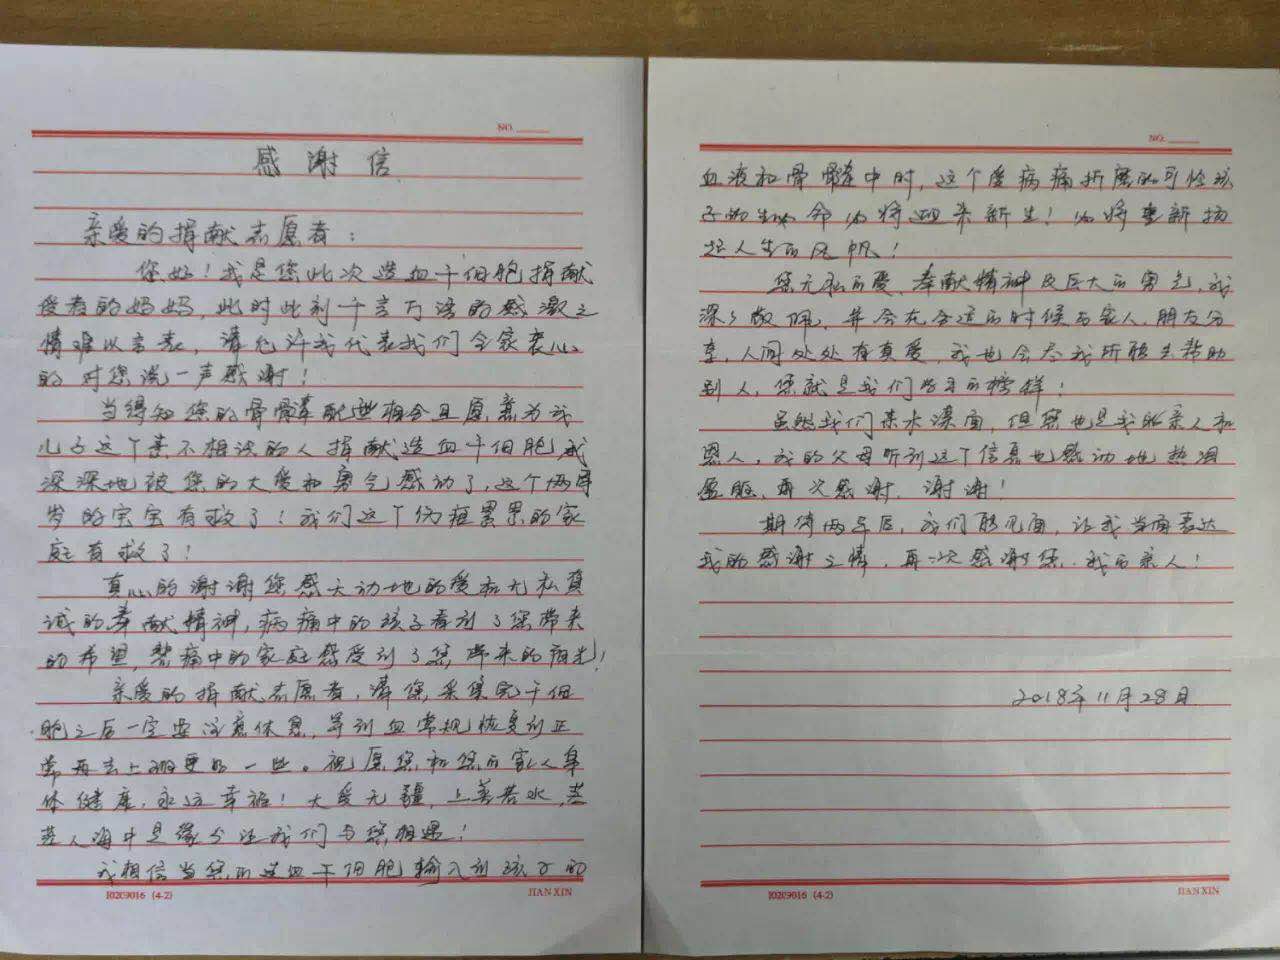 NO.
感谢信
亲爱的捐献志愿者：
您好！我是您此次造血干细胞捐献
受者的妈妈，此时此刻千言万语的感激之
情难以言表，请允许我代表我们全家衷心
的对您说一声感谢！
当得知您的骨髓配型相合且愿意为我
儿子这个素不相识的人捐献造血干细胞，我
深深地被您的大爱和勇气感动了，这个两周
岁的宝宝有救了！我们这个伤痕累累的家
庭有救了！
真心的谢谢您感天动地的爱和无私真
诚的奉献精神，病痛中的孩子看到了您带来
的希望，悲痛中的家庭感受到了您带来的阳光！
亲爱的捐献志愿者，请您采集完干细
胞之后一定要注意休息，等到血常规恢复到正
常再去上班更好一些。祝愿您和您的家人身
体健康，永远幸福！大爱无疆，上善若水，茫
茫人海中是缘分让我们与您相遇！
我相信当您的造血干细胞输入到孩子的
10209016 (4-2)
JIAN XIN
NO.
血液和骨髓中时，这个受病痛折磨的可怜孩
子的生命必将迎来新生！必将重新扬
起人生的风帆！
您无私的爱、奉献精神及巨大的勇气，我
深深敬佩，并会在合适的时候与家人、朋友分
享，人间处处有真爱，我也会尽我所能去帮助
别人，您就是我们学习的榜样！
虽然我们素未谋面，但您也是我的亲人和
恩人，我的父母听到这个信息也感动地热泪
盈眶，再次感谢，谢谢！
期待两年后，我们能见面，让我当面表达
我的感谢之情，再次感谢您，我的亲人！
2018年11月28日
10209016 (4-2)
JIAN XIN